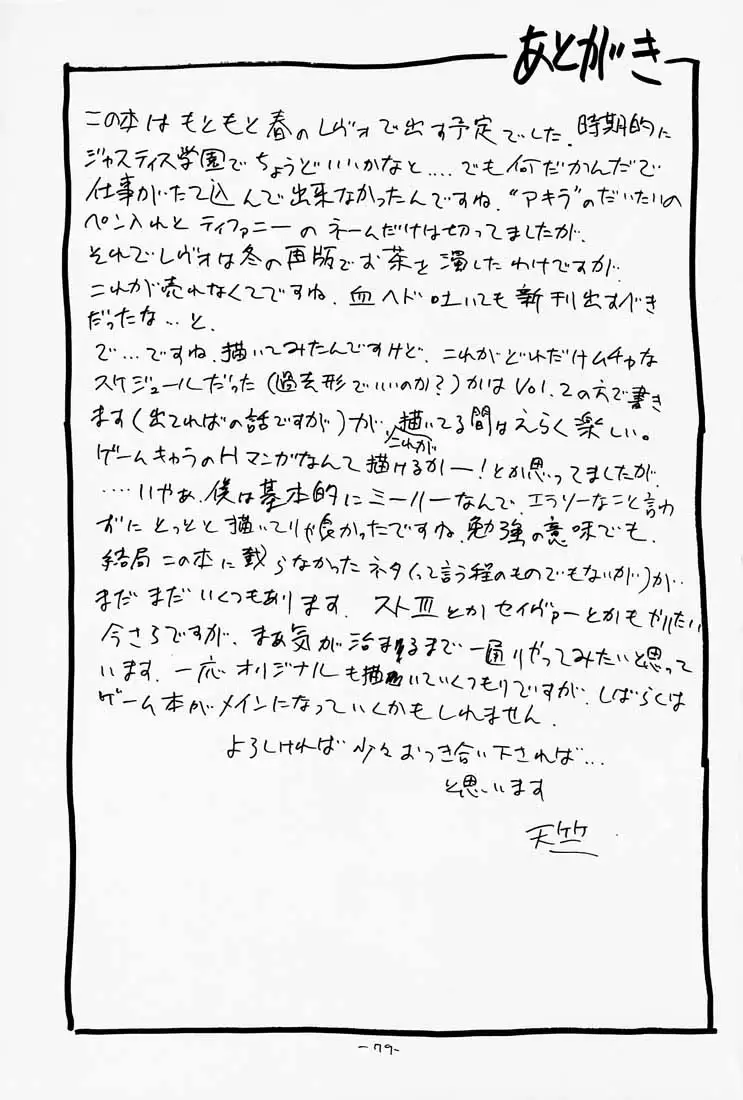 あとがき
この本はもともと春のレヴォで出す予定でした．時期的に
ジャスティス学園でちょうどいいかなと‥‥でも何だかんだで
仕事がたて込んで出来なかったんですね．“アキラ”のだいたいの
ペン入れとティファニーのネームだけは切ってましたが．
それでレヴォは冬の再版でお茶を濁したわけですが．
これが売れなくてですね．血ヘド吐いても新刊出すべき
だったな…と．
で…ですね．描いてみたんですけど．これがどれだけムチャな
スケジュールだった(過去形でいいのか?)かはVol.2の方で書き
ます(出てればの話ですが)が．これが描いてる間はえらく楽しい。
ゲームキャラのHマンガなんて描けるかー!とか思ってましたが．
‥‥いやぁ．僕は基本的にミーハーなんで．エラソーなこと言わ
ずにとっとと描いてりゃ良かったですね．勉強の意味でも．
結局この本に載らなかったネタ(って言う程のものでもないが)が
まだまだいくつもあります．ストⅢとかセイヴァーとかもやりたい
今さらですが、まぁ気が治まるまで一通りやってみたいと思って
います．一応オリジナルも描いていくつもりですが．しばらくは
ゲーム本がメインになっていくかもしれません．
よろしければ少々おつき合い下されば…
と思います
天竺
-79-